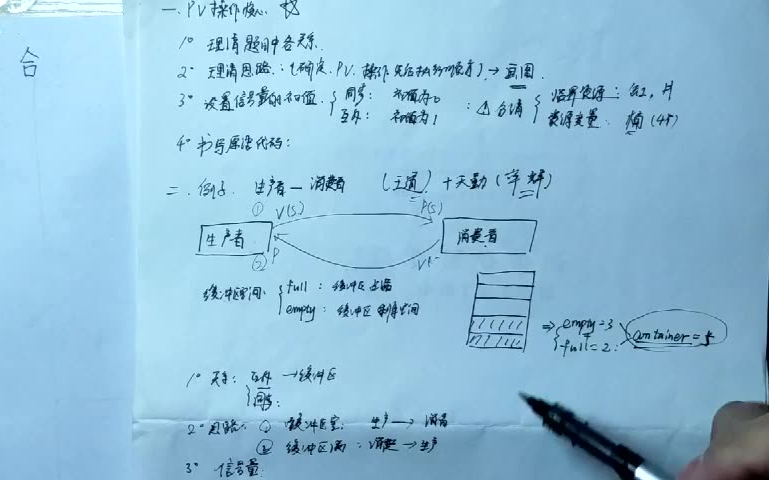 合
一、PV操作核心
1° 理清题目中各关系.
2° 理清思路:(确定PV操作先后执行的顺序)→画图
3° 设置信号量的初值 { 同步: 初值为0 互斥: 初值为1 :△分清 { 临界资源: 缸, 片 资源变量: 桶(45)
4° 书写原语代码:
二、例子. 生产者—消费者 (王道)+天勤(
① V(S) P(S)
生产者 消费者
② P V
缓冲区空间: { full: 缓冲区占满
empty: 缓冲区剩余空间
⇒ { empty=3
full=2: container=5
1° 关系: 互斥→缓冲区
同步:
2° 思路: ① 缓冲区空: 生产→消费
② 缓冲区满: 消费→生产
3° 信号量: